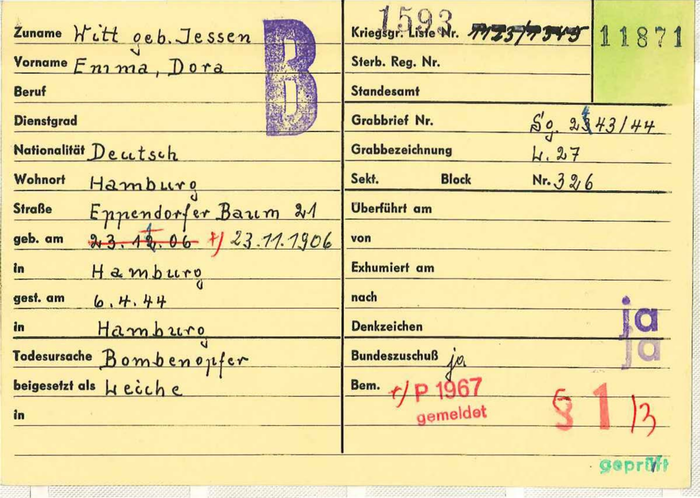 Zuname Witt geb. Jessen
Vorname Emma, Dora
Beruf
Dienstgrad
Nationalität Deutsch
Wohnort Hamburg
Straße Eppendorfer Baum 21
geb. am 23.12.06 +) 23.11.1906
in Hamburg
gest. am 6.4.44
in Hamburg
Todesursache Bombenopfer
beigesetzt als Leiche
in
B
1593
Kriegsgr. Liste Nr.
11871
Sterb. Reg. Nr.
Standesamt
Grabbrief Nr. Sg. 2443/44
Grabbezeichnung L. 27
Sekt. Block Nr. 326
Überführt am
von
Exhumiert am
nach
Denkzeichen ja
ja
Bundeszuschuß ja
Bem. +) P 1967
gemeldet
§ 1/3
geprüft